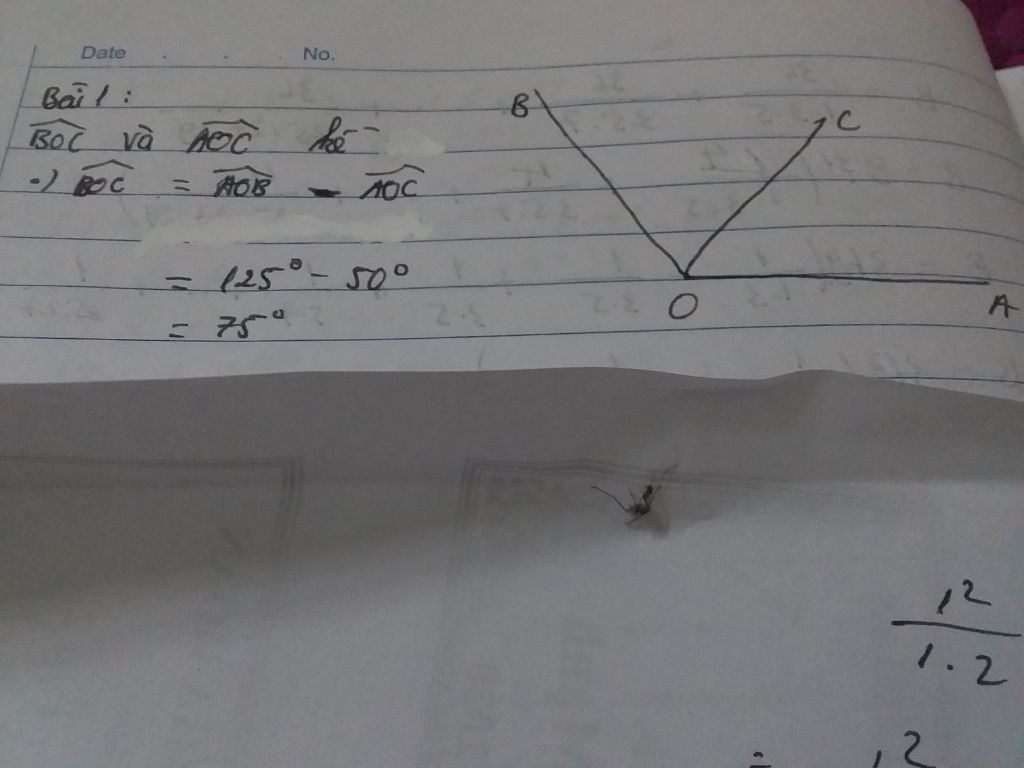 Date No.
Bài 1:
BOC và AOC kề
=) BOC = AOB - AOC
= 125° - 50°
= 75°
B
C
O
A
1²
1.2
= 1²